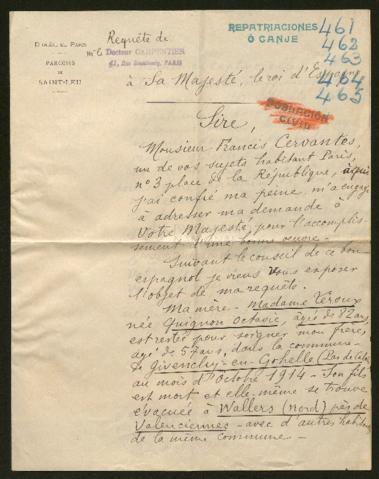 DIOCÈSE DE PARIS
PAROISSE
DE
SAINT-LEU
Requête de
Mr le Docteur CARPENTIER
REPATRIACIONES
Ó CANJE
461
462
463
464
465
à Sa Majesté, le roi d'Espagne
POBLACIÓN
CIVIL
Sire,
Monsieur Francis Cervantes,
un de vos sujets habitant Paris,
n° 3 place de la République, à qui
j'ai confié ma peine, m'a engagé
à adresser ma demande à
Votre Majesté, pour l'accomplis-
sement d'une bonne œuvre.
Suivant le conseil de ce bon
espagnol je viens Vous exposer
l'objet de ma requête.
Ma mère - Madame Veroux
née Guignon Octavie, âgée de 82 ans
est restée pour soigner mon frère,
âgé de 57 ans, dans la commune
de Givenchy-en-Gohelle (Pas de Calais)
au mois d'Octobre 1914 - Son fils
est mort et elle-même se trouve
évacuée à Wallers (Nord) près de
Valenciennes - avec d'autres habitants
de la même commune -